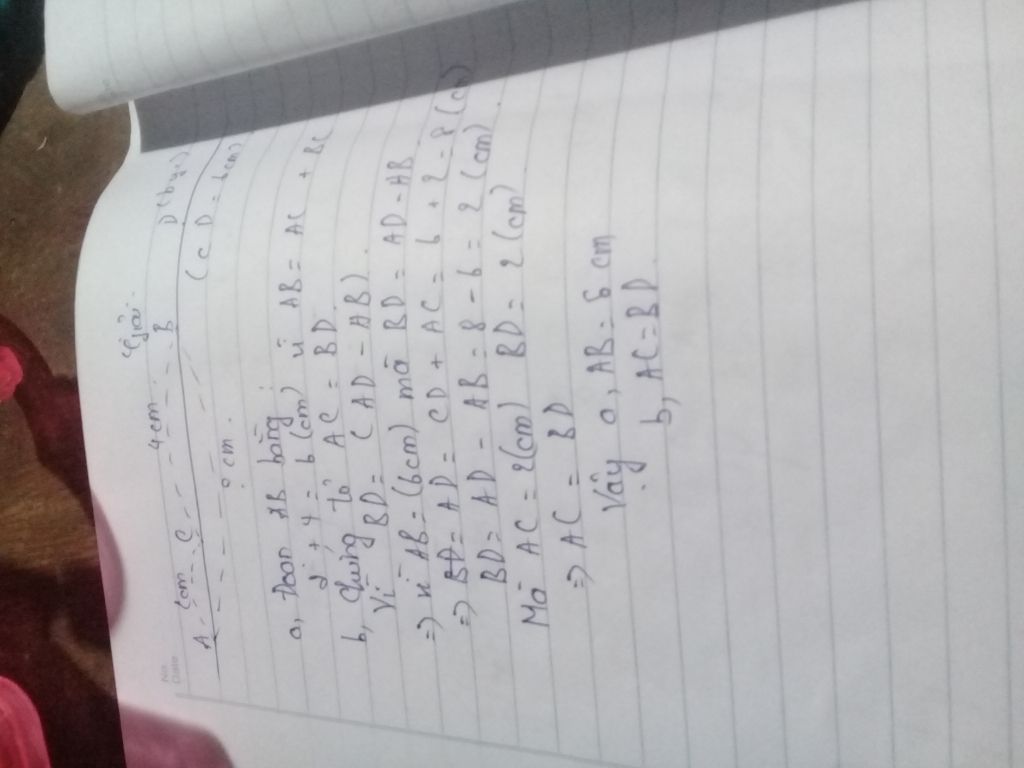 No.
Date
Giải:
4cm
A C B D
(CD = 6cm)
a, Đoạn AB bằng:
2 + 4 = 6 (cm) vì AB = AC + BC
b, Chứng tỏ AC = BD
Vì BD = (AD - AB)
=> vì AB = (6cm) mà BD = AD - AB
=> AD = CD + AC = 6 + 2 = 8 (cm)
BD = AD - AB = 8 - 6 = 2 (cm)
Mà AC = 2(cm) BD = 2 (cm)
=> AC = BD
Vậy a, AB = 6 cm
b, AC = BD